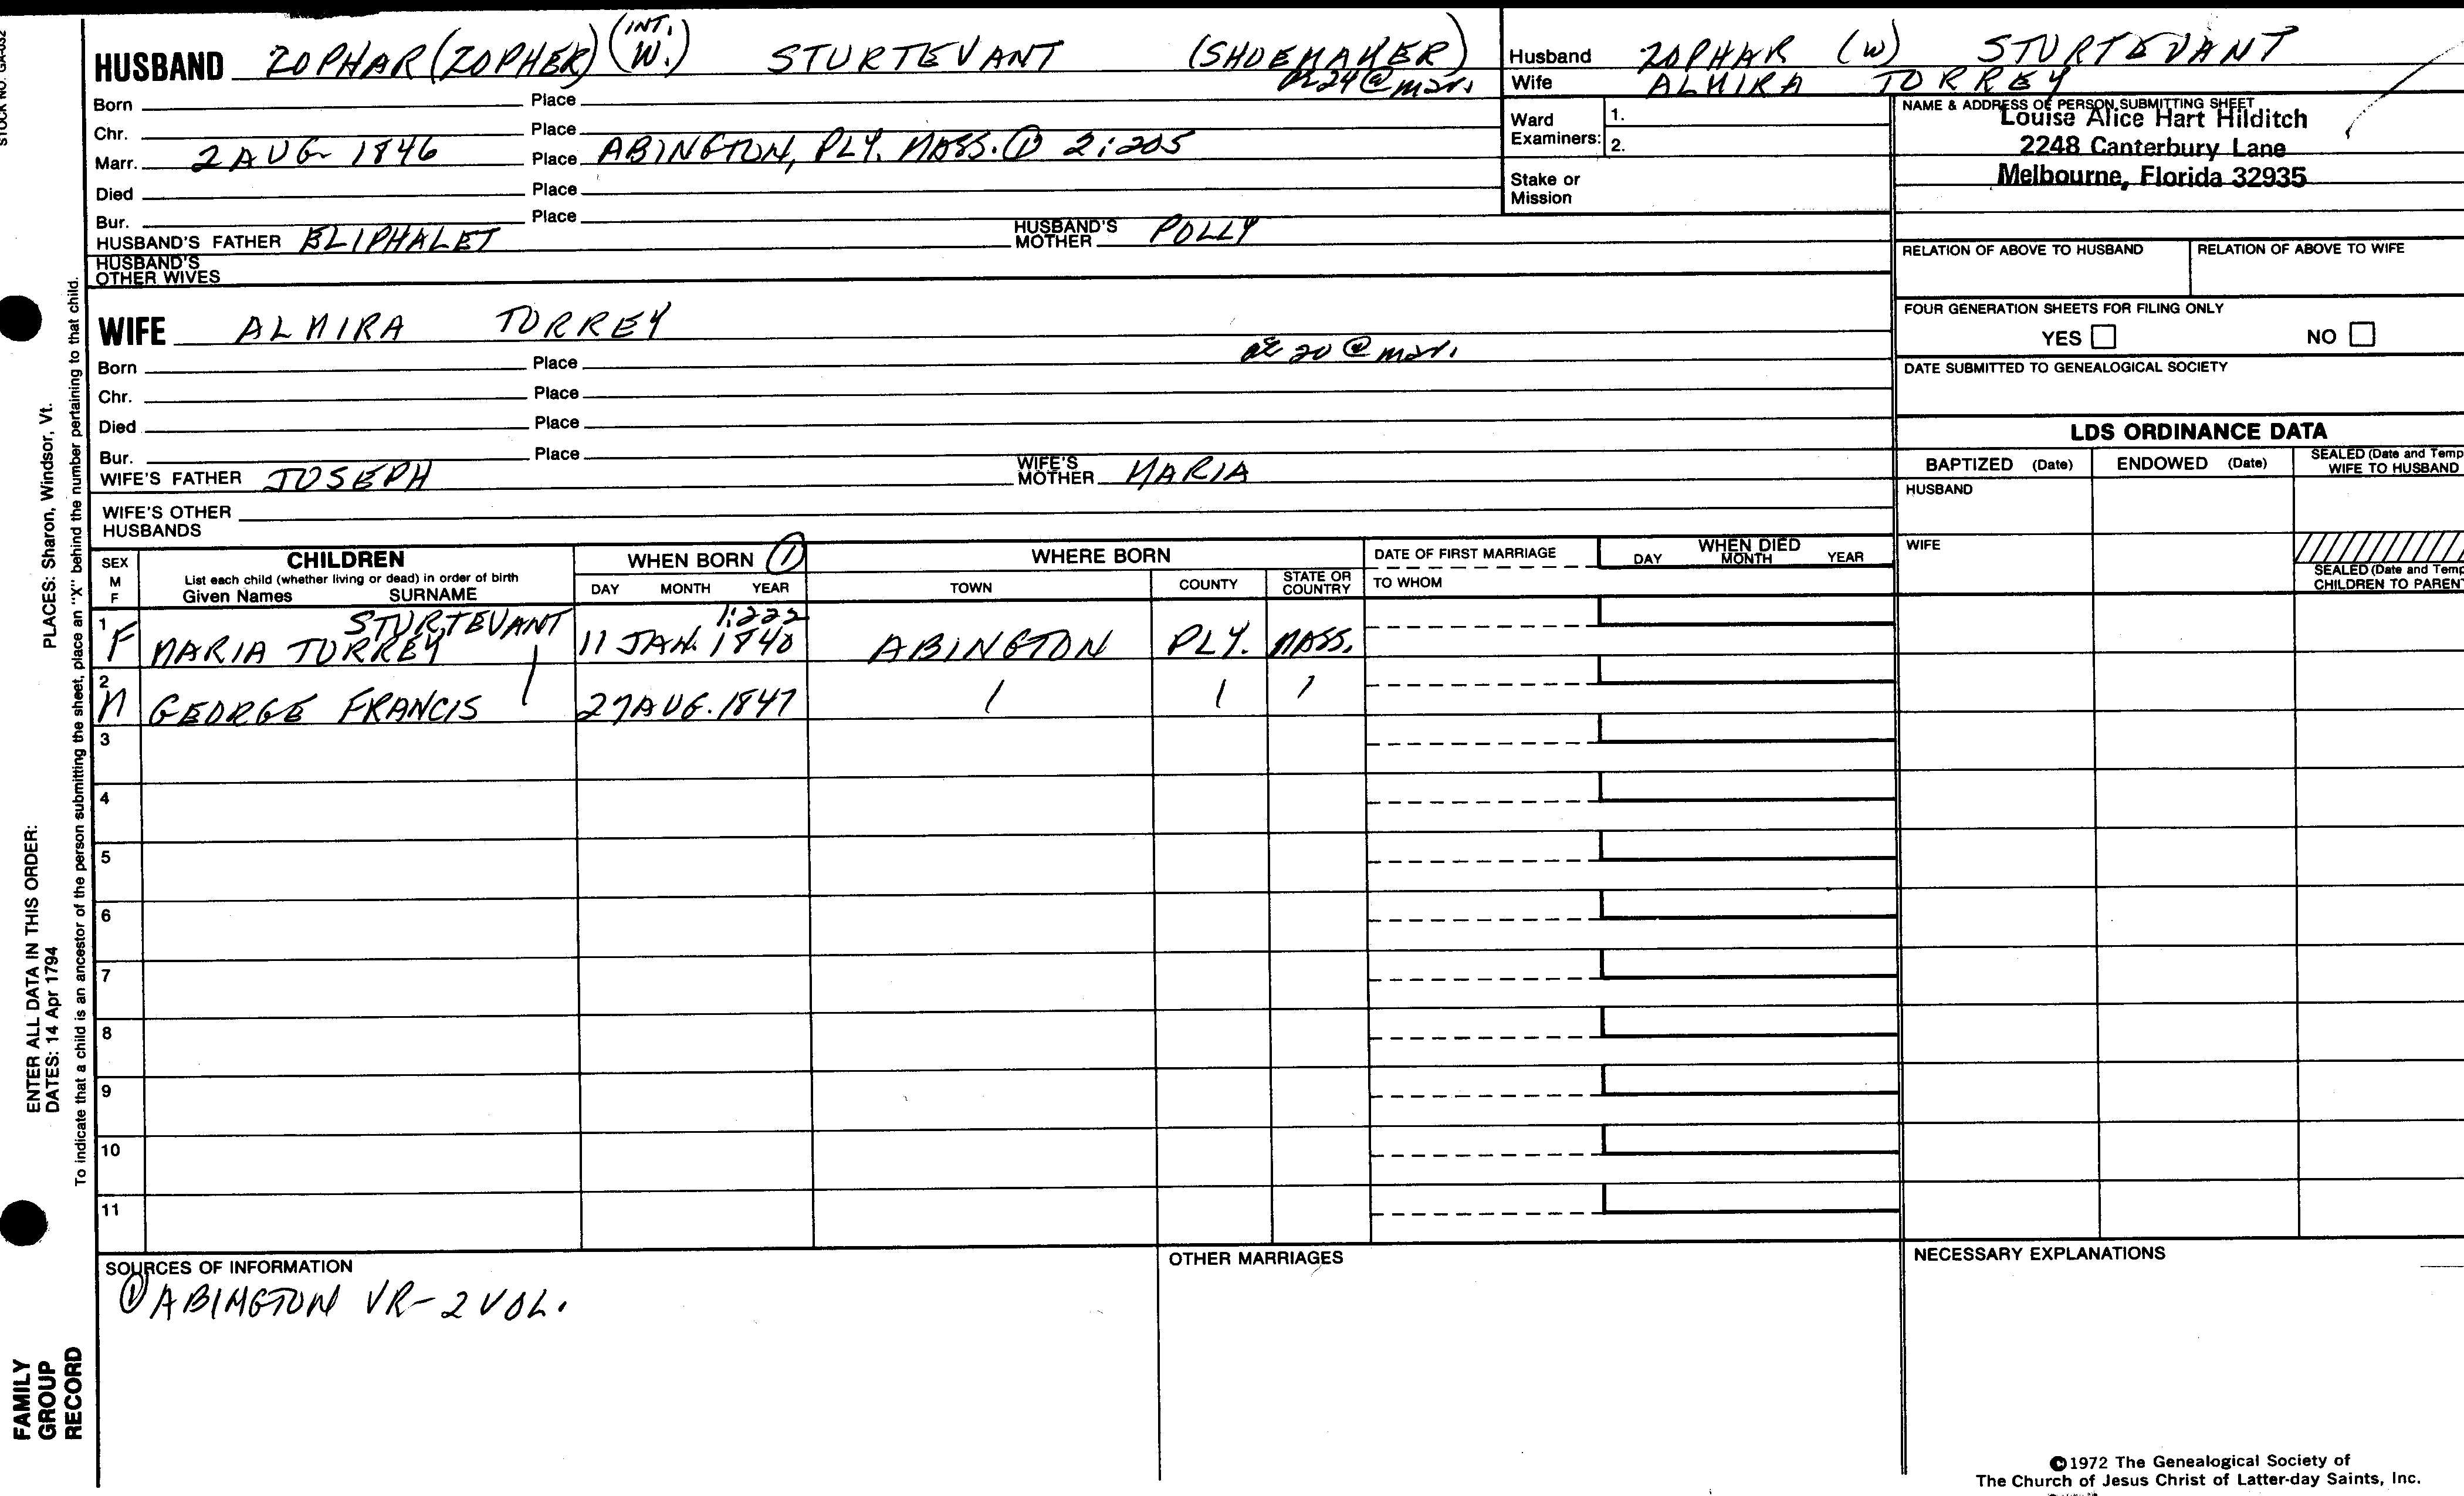 STOCK NO. GA-032
HUSBAND ZOPHAR (ZOPHER) (INT. W.) STURTEVANT (SHOEMAKER)
Born Place Æ 24 @ mar.
Chr. Place
Marr. 2 AUG 1846 Place ABINGTON, PLY. MASS. ① 2:205
Died Place
Bur. Place
HUSBAND'S FATHER ELIPHALET HUSBAND'S MOTHER POLLY
HUSBAND'S OTHER WIVES
WIFE ALMIRA TORREY
Born Place æ 20 @ mar.
Chr. Place
Died Place
Bur. Place
WIFE'S FATHER JOSEPH WIFE'S MOTHER MARIA
WIFE'S OTHER HUSBANDS
Husband ZOPHAR (W) STURTEVANT
Wife ALMIRA TORREY
Ward Examiners: 1.
2.
Stake or Mission
NAME & ADDRESS OF PERSON SUBMITTING SHEET
Louise Alice Hart Hilditch
2248 Canterbury Lane
Melbourne, Florida 32935
RELATION OF ABOVE TO HUSBAND RELATION OF ABOVE TO WIFE
FOUR GENERATION SHEETS FOR FILING ONLY
YES NO
DATE SUBMITTED TO GENEALOGICAL SOCIETY
LDS ORDINANCE DATA
BAPTIZED (Date) ENDOWED (Date) SEALED (Date and Temp
WIFE TO HUSBAND
HUSBAND
WIFE
SEALED (Date and Temp
CHILDREN TO PARENT
SEX M F
CHILDREN
List each child (whether living or dead) in order of birth
Given Names SURNAME
WHEN BORN ①
DAY MONTH YEAR
WHERE BORN
TOWN COUNTY STATE OR COUNTRY
DATE OF FIRST MARRIAGE
TO WHOM
WHEN DIED
DAY MONTH YEAR
STURTEVANT 1:222
1 F MARIA TORREY 11 JAN. 1840 ABINGTON PLY. MASS.
2 M GEORGE FRANCIS 27 AUG. 1847
3
4
5
6
7
8
9
10
11
SOURCES OF INFORMATION
① ABINGTON VR - 2 VOL.
OTHER MARRIAGES
NECESSARY EXPLANATIONS
©1972 The Genealogical Society of
The Church of Jesus Christ of Latter-day Saints, Inc.
PLACES: Sharon, Windsor, Vt.
ENTER ALL DATA IN THIS ORDER:
DATES: 14 Apr 1794
To indicate that a child is an ancestor of the person submitting the sheet, place an "X" behind the number pertaining to that child.
FAMILY
GROUP
RECORD